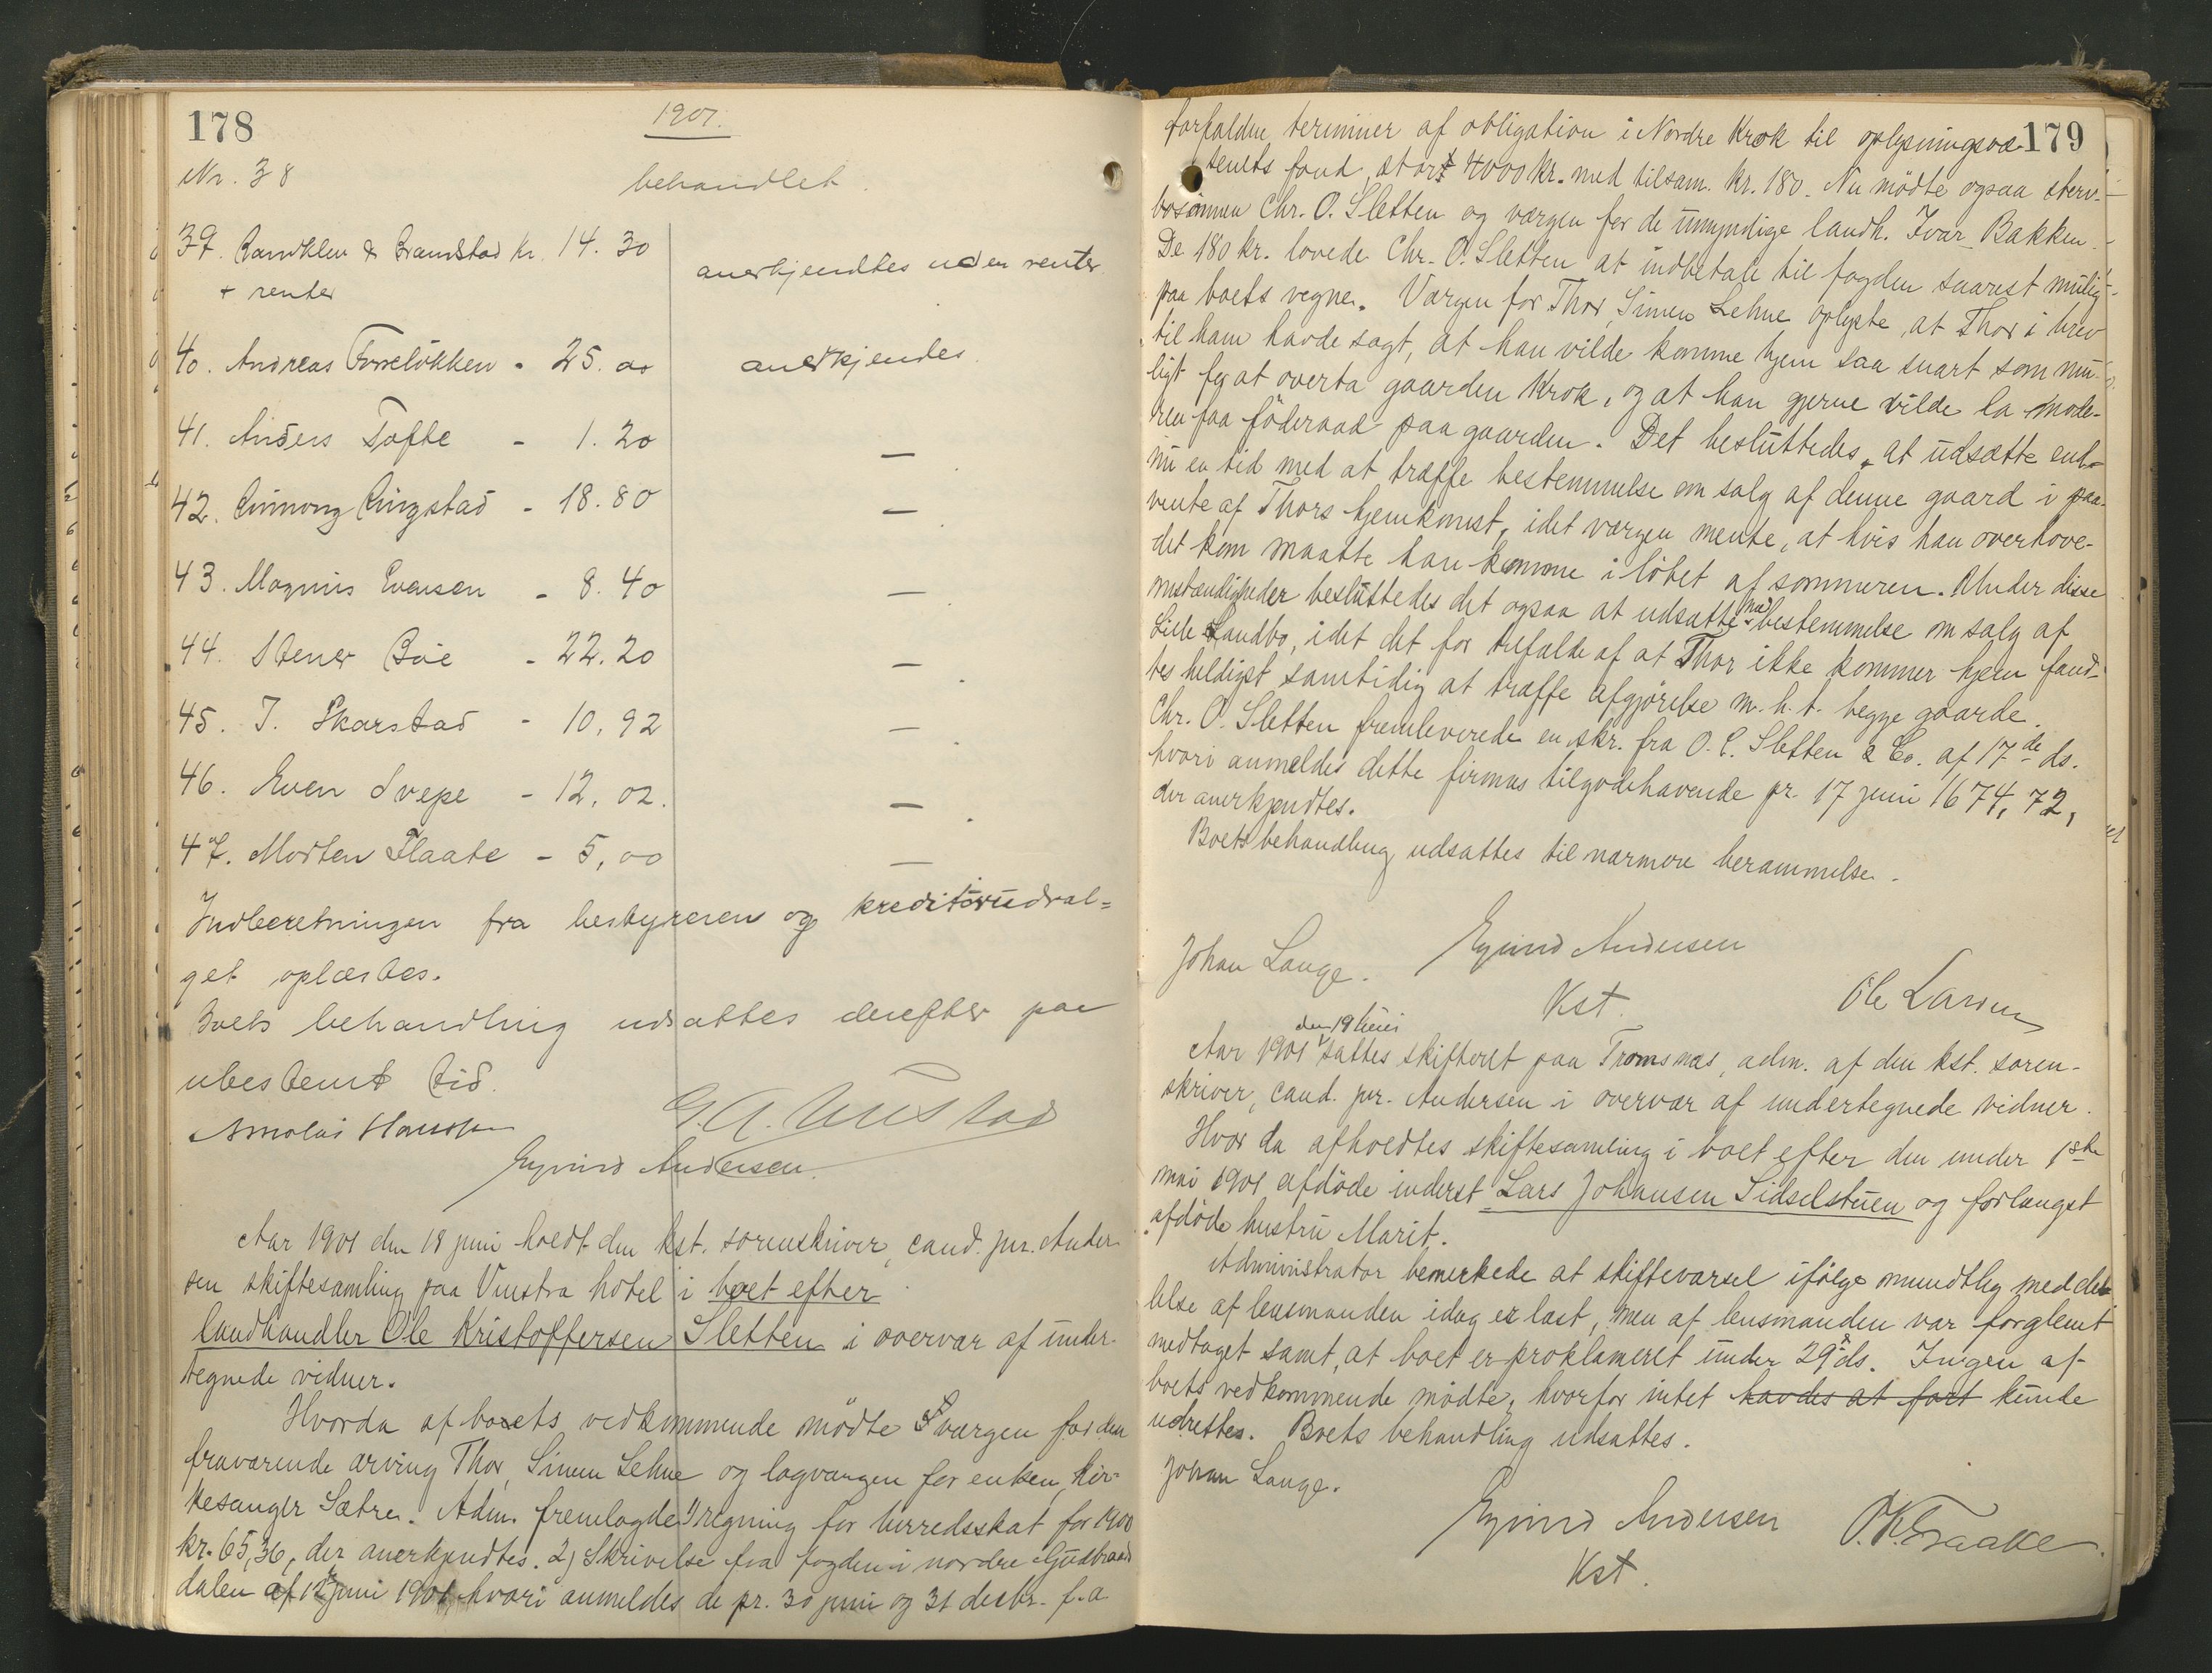 178
1901.
Nr. 38
behandlet.
39. Randklev & Bramstad kr. 14.30 anerkjendtes uden renter.
+ renter
40. Andreas Torreløkken - 25.00 anerkjendes
41. Anders Tofte - 1.20 —
42. Ringstad - 18.80 —
43. Magnus Evensen - 8.40 —
44. Stener Bøe - 22.20 —
45. J. Skarstad - 10,92 —
46. Even Svepe - 12,02. —
47. Morten Flaate - 5,00 —
Indberetningen fra bestyreren og kreditorudval=
get oplæstes.
Boets behandling udsattes derefter paa
ubestemt tid.
Arnolas Hansen
Eyvind Andersen.
Aar 1901 den 18 juni holdt den kst. sorenskriver, cand. jur. Ander-
sen skiftesamling paa Vinstra hotel i boet efter
landhandler Ole Kristoffersen Sletten i overvær af under-
tegnede vidner.
Hvorda af boets vedkommende mødte værgen for den
fraværende arving Thor, Simen Lehne og lagværgen for enken, kir-
kesanger Sætre. Adm. fremlagde 1) regning for herredsskat for 1900
kr. 65,36, der anerkjendtes. 2) Skrivelse fra fogden i nordre Gudbrands
dalen af 12 juni 1901, hvori anmeldes de pr. 30 juni og 31 decbr. f.a.
179
forfaldne terminer af obligation i Nordre Krok til oplysningsvæ-
senets fond, stort 4000 kr. med tilsam. kr. 180. Nu mødte ogsaa sterv-
bosønnen Chr. O. Sletten og værgen for de umyndige landh. Ivar Bakken.
De 180 kr. lovede Chr. O. Sletten at indbetale til fogden snarest mulig
paa boets vegne. Værgen for Thor, Simen Lehne oplyste, at Thor i brev
til ham havde sagt, at han vilde komme hjem saa snart som mu-
ligt for at overta gaarden Krok, og at han gjerne vilde la mode-
ren faa føderaad paa gaarden. Det besluttedes, at udsætte end-
nu en tid med at træffe bestemmelse om salg af denne gaard i paa-
vente af Thors hjemkomst, idet værgen mente, at hvis han overhove-
det kom maatte han komme i løbet af sommeren. Under disse
omstændigheder besluttedes det ogsaa at udsætte med bestemmelse om salg af
Lille Sandbo, idet det for tilfælde af at Thor ikke kommer hjem fand-
tes heldigst samtidig at træffe afgjørelse m.h.t. begge gaarde.
Chr. O. Sletten fremleverede en skr. fra O. C. Sletten & Co. af 17de ds.
hvori anmeldes dette firmas tilgodehavende pr. 17 juni 1674,72,
der anerkjendtes.
Boets behandling udsattes til nærmere berammelse.
Johan Lange. Eyvind Andersen
Kst. Ole Larsen
Aar 1901 den 19 juni sattes skifteret paa Tromsnæs, adm. af den kst. soren-
skriver, cand. jur. Andersen i overvær af undertegnede vidner.
Hvor da afholdtes skiftesamling i boet efter den under 1ste
mai 1901 afdøde inderst Lars Johansen Sidselstuen og forlængst
afdøde hustru Marit.
Administrator bemerkede at skiftevarsel ifølge mundtlig meddel-
lelse af lensmanden idag er læst, men af lensmanden var forglemt
medtaget samt, at boet er proklameret under 29 ds. Ingen af
boets vedkommende mødte, hvorfor intet havdes at fort kunde
udrettes. Boets behandling udsattes.
Johan Lange.
Eyvind Andersen O. K. Traaке.
Kst.